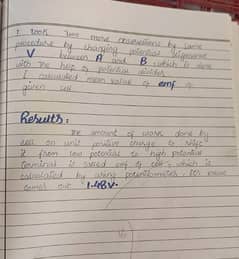 I took two more observations by same
procedure by changing potential difference
V between A and B which is done
with the help of potential divider.
I calculated mean value of emf of
given cell.
Results:
The amount of work done by
cell on unit positive charge to
it from low potential to high potential
terminal is called emf of cell, which is
calculated by using potentiometer. Its value
comes out 1.48V.